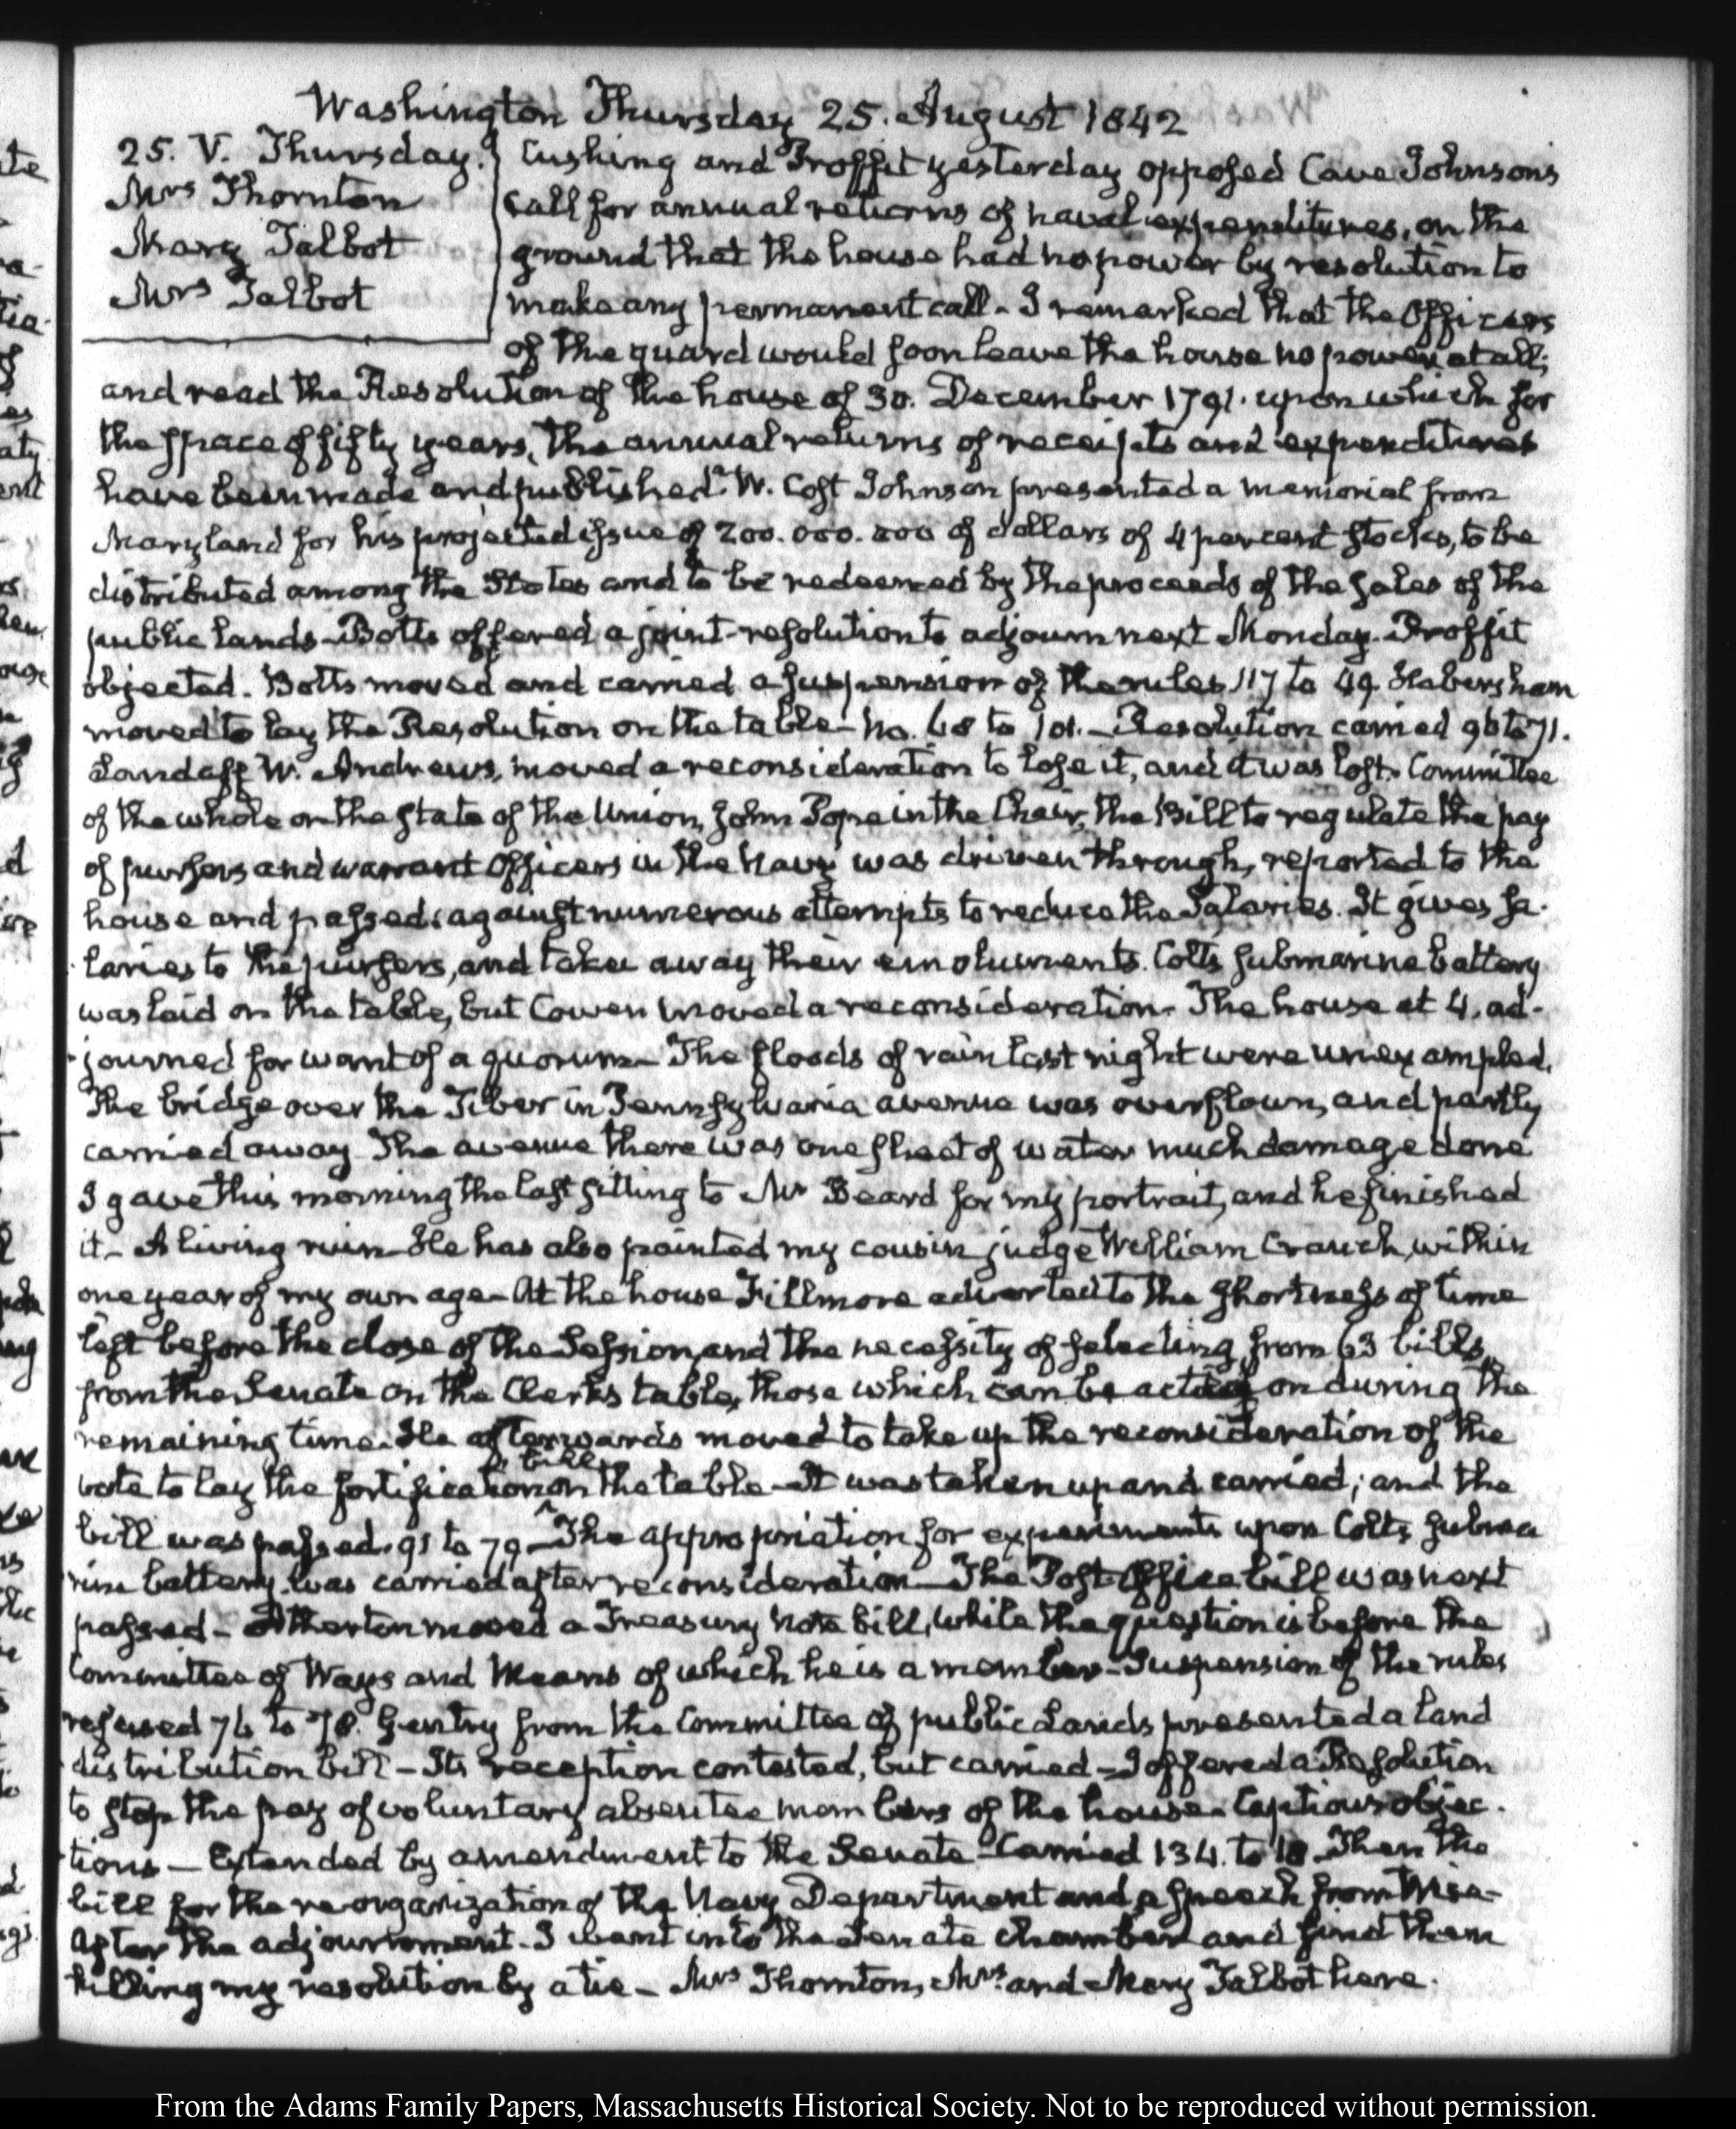 Washington Thursday 25. August 1842
25. V. Thursday.
Mrs Thornton
Mary Talbot
Mrs Talbot
Cushing and Proffit yesterday opposed Cave Johnsons
call for annual returns of naval expenditures, on the
ground that the house had no power by resolution to
make any permanent call - I remarked that the Officers
of the guard would soon leave the house no power at all;
and read the Resolution of the house of 30. December 1791. upon which for
the space of fifty years, the annual returns of receipts and expenditures
have been made and published. W. Cost Johnson presented a memorial from
Maryland for his projected issue of 200.000.000 of dollars of 4 per cent stocks, to be
distributed among the States and to be redeemed by the proceeds of the sales of the
public lands - Botts offered a joint-resolution to adjourn next Monday. Proffit
objected. Botts moved and carried a suspension of the rules 117 to 49. Habersham
moved to lay the Resolution on the table - no. 68 to 101. - Resolution carried 96 to 71.
Landaff W. Andrews, moved a reconsideration to lose it, and it was lost. Committee
of the whole on the state of the Union, John Pope in the Chair, the Bill to regulate the pay
of pursers and warrant Officers in the Navy was driven through, reported to the
house and passed: against numerous attempts to reduce the Salaries. It gives sa-
laries to the pursers, and takes away their emoluments. Colts submarine battery
was laid on the table, but Cowen moved a reconsideration - The house at 4. ad-
journed for want of a quorum - The floods of rain last night were unexampled.
The bridge over the Tiber in Pennsylvania avenue was overflown, and partly
carried away The avenue there was one sheet of water much damage done
I gave this morning the last sitting to Mr Beard for my portrait, and he finished
it - A living ruin He has also painted my cousin judge William Cranch, within
one year of my own age - At the house Fillmore adverted to the shortness of time
left before the close of the Session, and the necessity of selecting from 63 bills,
from the Senate on the Clerks table, those which can be acted on during the
remaining time. He afterwards moved to take up the reconsideration of the
vote to lay the fortification bill on the table - It was taken up and carried; and the
bill was passed. 91 to 79 - The appropriation for experiments upon Colts subma
rine battery, was carried after reconsideration - The Post-Office bill was next
passed - Atherton moved a Treasury note bill, while the question is before the
Committee of Ways and Means of which he is a member - Suspension of the rules
refused 76 to 78. Gentry from the Committee of public Lands presented a land
distribution bill - Its reception contested, but carried - I offered a Resolution
to stop the pay of voluntary absentee members of the house. Captious objec-
tions - Extended by amendment to the Senate - Carried 134. to 18 - Then the
bill for the re-organization of the Navy Department and a speech from Wise -
After the adjournment - I went into the Senate chamber and find them
killing my resolution by a tie - Mrs Thornton, Mrs and Mary Talbot here.
From the Adams Family Papers, Massachusetts Historical Society. Not to be reproduced without permission.